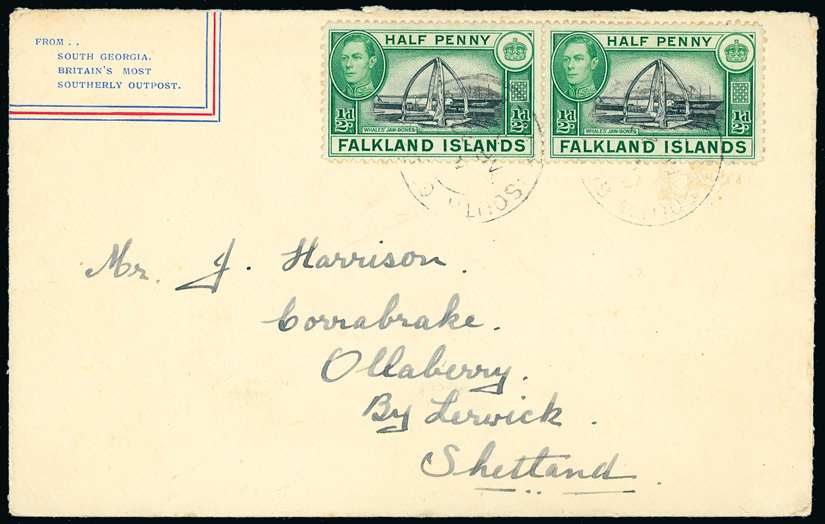 FROM . .
SOUTH GEORGIA.
BRITAIN'S MOST
SOUTHERLY OUTPOST.
HALF PENNY
½d
½d
WHALES' JAW-BONES
FALKLAND ISLANDS
HALF PENNY
½d
½d
WHALES' JAW-BONES
FALKLAND ISLANDS
SOUTH G
SOUTH G
Mr. J. Harrison.
Corrabrake.
Ollaberry.
By Lerwick.
Shetland.